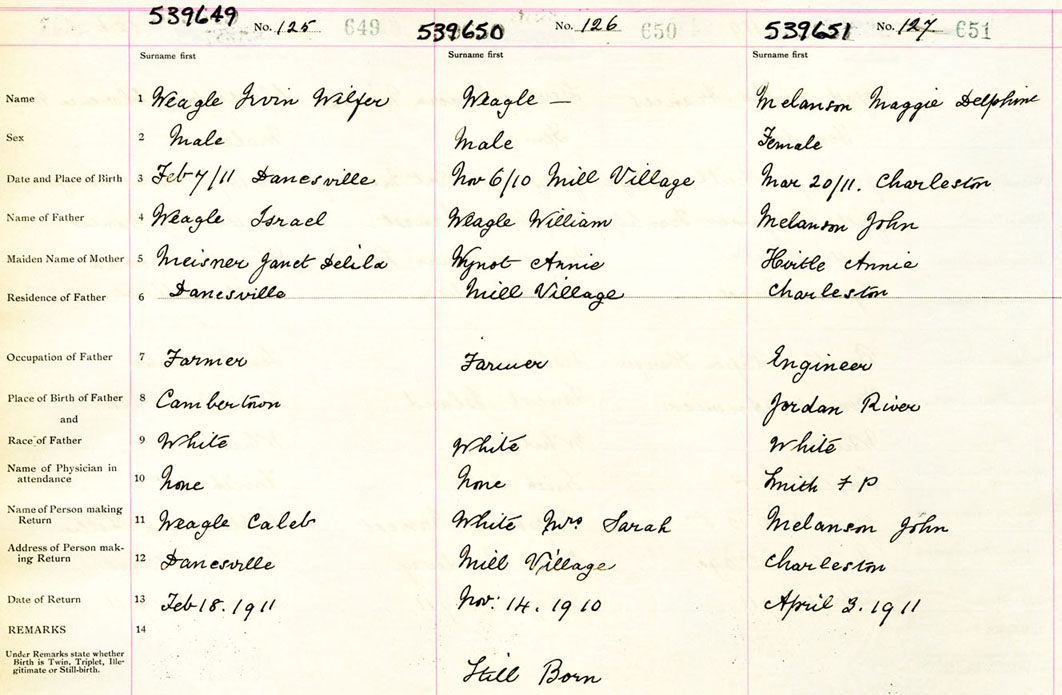 539649 No. 125 649 539650 No. 126 650 539651 No. 127 651
Surname first Surname first Surname first
Name 1 Weagle Irvin Wilfer Weagle — Melanson Maggie Delphine
Sex 2 Male Male Female
Date and Place of Birth 3 Feb 7/11 Danesville Nov 6/10 Mill Village Mar 20/11. Charleston
Name of Father 4 Weagle Israel Weagle William Melanson John
Maiden Name of Mother 5 Meisner Janet Delila Wynot Annie Hirtle Annie
Residence of Father 6 Danesville Mill Village Charleston
Occupation of Father 7 Farmer Farmer Engineer
Place of Birth of Father 8 Cambertown Jordan River
and
Race of Father 9 White White White
Name of Physician in
attendance 10 None None Smith F P
Name of Person making
Return 11 Weagle Caleb White Mrs Sarah Melanson John
Address of Person mak-
ing Return 12 Danesville Mill Village Charleston
Date of Return 13 Feb 18. 1911 Nov. 14. 1910 April 3. 1911
REMARKS 14
Under Remarks state whether
Birth is Twin, Triplet, Ille-
gitimate or Still-birth.
Still Born